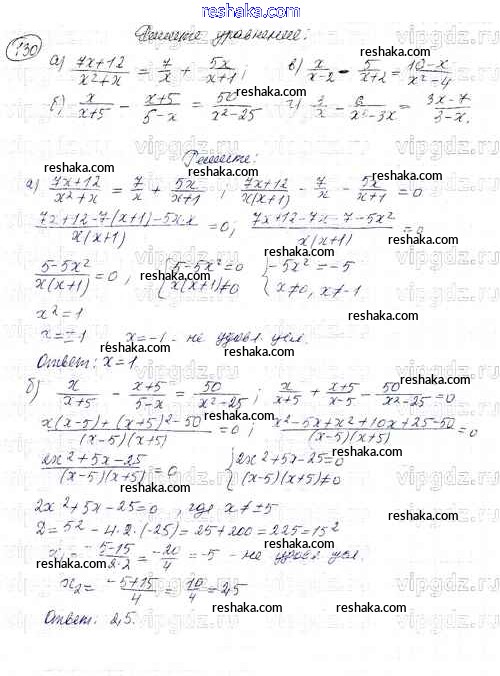 reshaka.com
Решите уравнение:
130
а) (7x+12)/(x²+x) = 7/x + 5x/(x+1); в) x/(x-2) - 5/(x+2) = (10-x)/(x²-4)
б) x/(x+5) - (x+5)/(5-x) = 50/(x²-25) г) 3/x - 6/(x²-3x) = (3x-7)/(3-x).
Решение:
а) (7x+12)/(x²+x) = 7/x + 5x/(x+1); (7x+12)/(x(x+1)) - 7/x - 5x/(x+1) = 0
(7x+12-7(x+1)-5x·x)/(x(x+1)) = 0; (7x+12-7x-7-5x²)/(x(x+1)) = 0
(5-5x²)/(x(x+1)) = 0, { 5-5x²=0 { -5x²=-5
{ x(x+1)≠0 { x≠0, x≠-1
x²=1
x=±1 x=-1 - не удовл. усл.
Ответ: x=1.
б) x/(x+5) - (x+5)/(5-x) = 50/(x²-25); x/(x+5) + (x+5)/(x-5) - 50/(x²-25) = 0
(x(x-5)+(x+5)²-50)/((x-5)(x+5)) = 0; (x²-5x+x²+10x+25-50)/((x-5)(x+5)) = 0
(2x²+5x-25)/((x-5)(x+5)) = 0 { 2x²+5x-25=0
{ (x-5)(x+5)≠0
2x²+5x-25=0, где x≠±5
D = 5²-4·2·(-25) = 25+200 = 225 = 15²
x₁ = (-5-15)/(2·2) = -20/4 = -5 - не удовл. усл.
x₂ = (-5+15)/4 = 10/4 = 2,5
Ответ: 2,5.
reshaka.com
vipgdz.ru